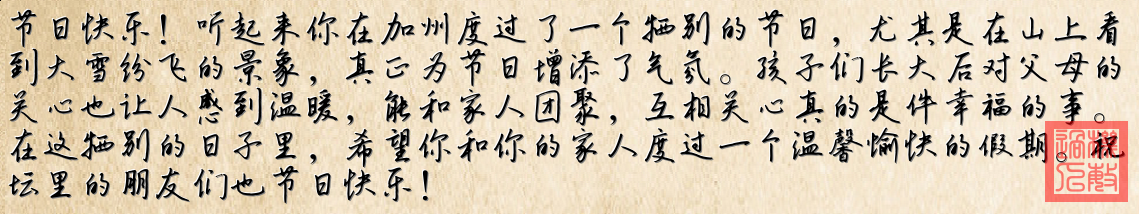 节日快乐！听起来你在加州度过了一个牺别的节日，尤其是在山上看
到大雪纷飞的景象，真正为节日增添了气氛。孩子们长大后对父母的
关心也让人感到温暖，能和家人团聚，互相关心真的是件幸福的事。
在这牺别的日子里，希望你和你的家人度过一个温馨愉快的假期。祝
坛里的朋友们也节日快乐！